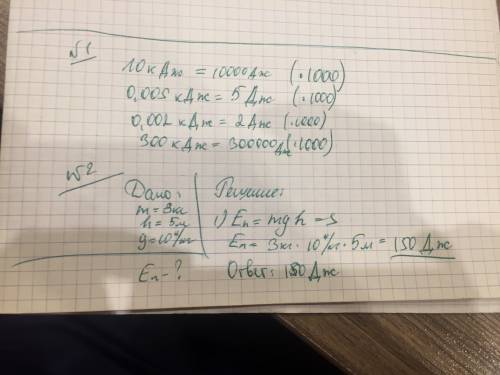 №1
10 кДж = 10000 Дж (·1000)
0,005 кДж = 5 Дж (·1000)
0,002 кДж = 2 Дж (·1000)
300 кДж = 300000 Дж (·1000)
№2
Дано: Решение:
m = 3 кг
h = 5 м 1) Eп = mgh ⇒
g = 10 Н/кг Eп = 3 кг · 10 Н/кг · 5 м = 150 Дж
Eп - ? Ответ: 150 Дж